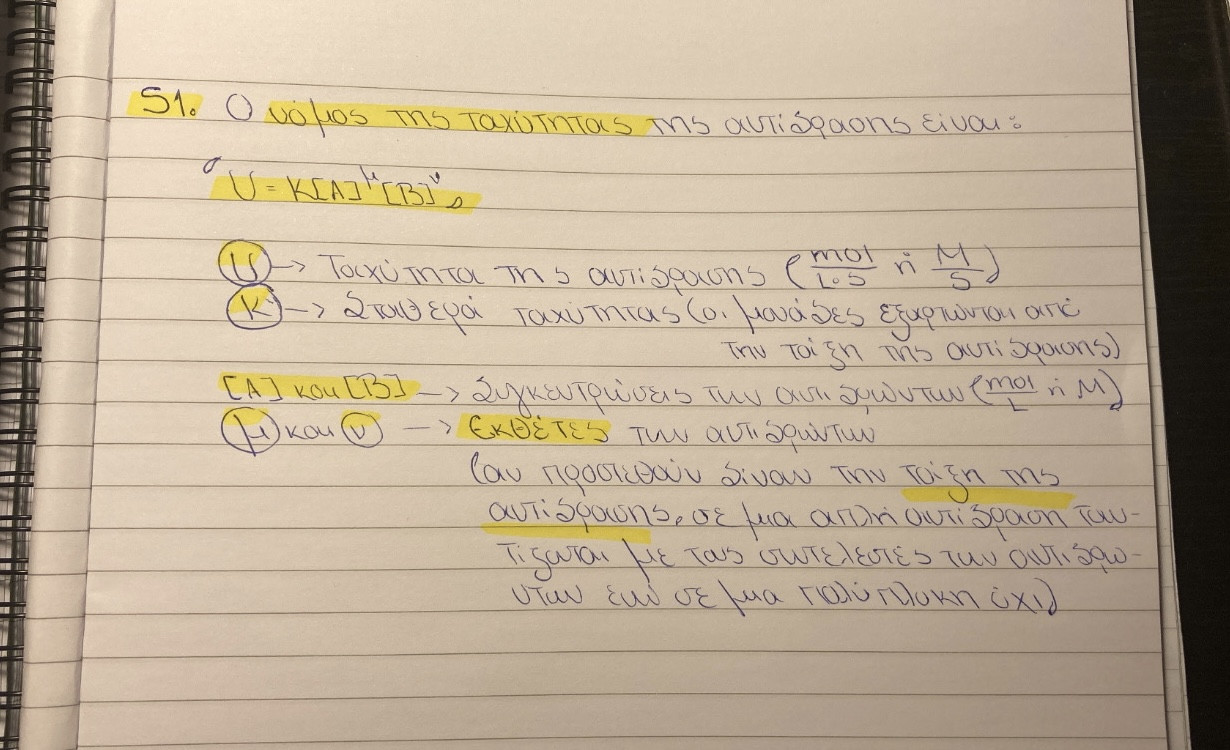 51. Ο νόμος της ταχύτητας της αντίδρασης είναι:
"U = K[A]^μ [B]^ν"
U -> Ταχύτητα της αντίδρασης (mol/L·s ή M/s)
K -> Σταθερά ταχύτητας (οι μονάδες εξαρτώνται από
την τάξη της αντίδρασης)
[A] και [B] -> Συγκεντρώσεις των αντιδρώντων (mol/L ή M)
μ και ν -> Εκθέτες των αντιδρώντων
(αν προστεθούν δίνουν την τάξη της
αντίδρασης, σε μια απλή αντίδραση ταυ-
τίζονται με τους συντελεστές των αντιδρώ-
ντων ενώ σε μια πολύπλοκη όχι)